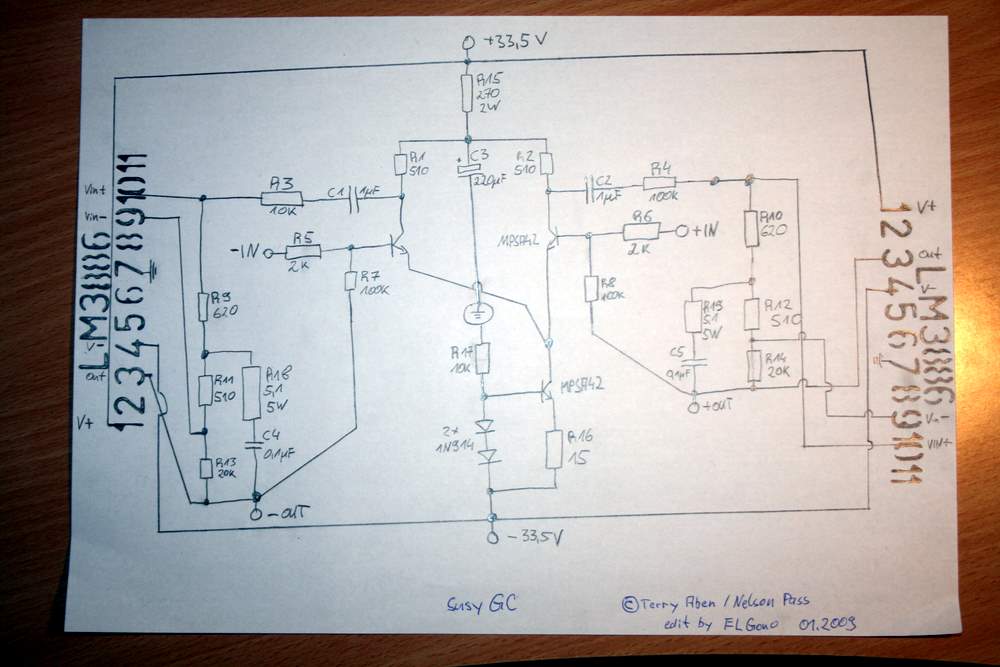 +33,5V
R15
270
2W
R1
510
C3
+
220µF
R2
510
Vin+
Vin-
LM3886
1 2 3 4 5 6 7 8 9 10 11
V-
out
V+
R3
10K
C1
1µF
-IN
R5
2K
R7
100K
R9
620
R11
510
R18
5,1
5W
C4
0,1µF
R13
20K
-OUT
C2
1µF
R4
100K
MPSA42
R6
2K
+IN
R8
100K
R10
620
R19
5,1
5W
R12
510
C5
0,1µF
R14
20K
+OUT
R17
10K
MPSA42
2x
1N914
R16
15
-33,5V
V+
out
V-
1 2 3 4 5 6 7 8 9 10 11
LM3886
Vin-
Vin+
Susy GC
© Terry Aben / Nelson Pass
edit by ELGono 01.2009